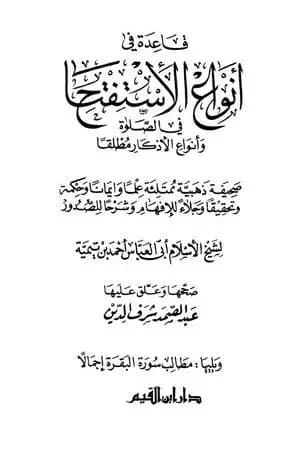 قاعدة في
أنواع الاستفتاح
في الصلاة
وأنواع الأذكار مطلقا
صحيفة ذهبية ممتلئة علما وإيمانا وحكمة
وتحقيقا وجلاء للإفهام وشرحا للصدور
لشيخ الإسلام أبي العباس أحمد بن تيمية
صححها وعلق عليها
عبد الصمد شرف الدين
ويليها: مطالب سورة البقرة إجمالا
دار ابن القيم